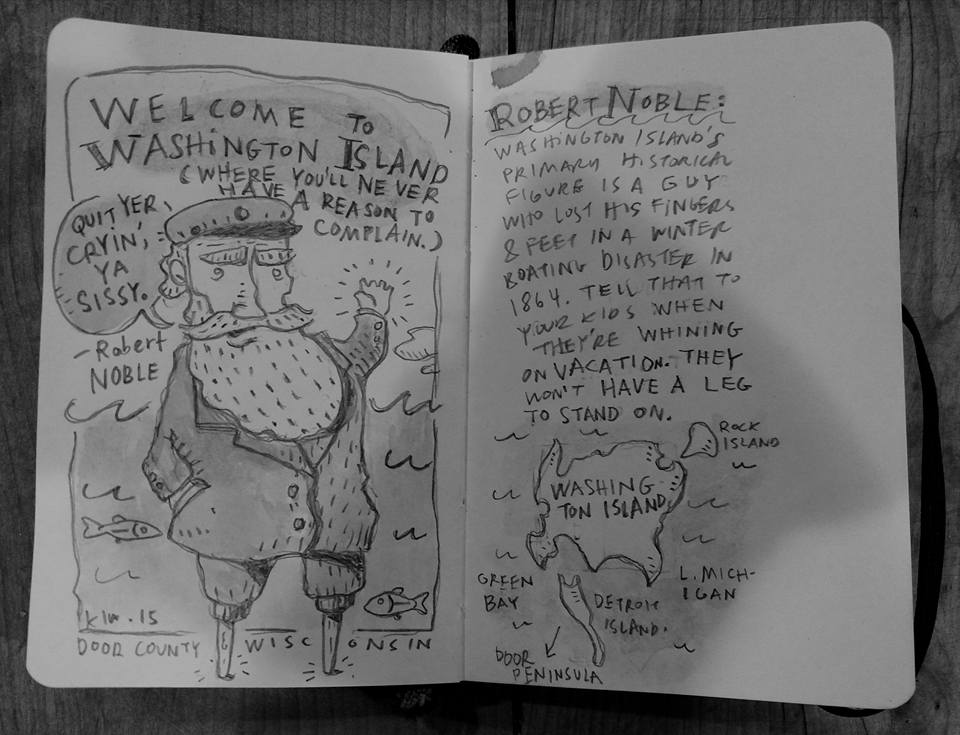 WELCOME TO
WASHINGTON ISLAND
(WHERE YOU'LL NEVER
HAVE A REASON TO
COMPLAIN.)
QUIT YER
CRYIN',
YA
SISSY.
-Robert
NOBLE
klw.15
DOOR COUNTY WISCONSIN
ROBERT NOBLE:
WASHINGTON ISLAND'S
PRIMARY HISTORICAL
FIGURE IS A GUY
WHO LOST HIS FINGERS
& FEET IN A WINTER
BOATING DISASTER IN
1864. TELL THAT TO
YOUR KIDS WHEN
THEY'RE WHINING
ON VACATION. THEY
WON'T HAVE A LEG
TO STAND ON.
ROCK
ISLAND
WASHING-
TON ISLAND
GREEN
BAY
L. MICH-
IGAN
DETROIT
ISLAND.
DOOR
PENINSULA